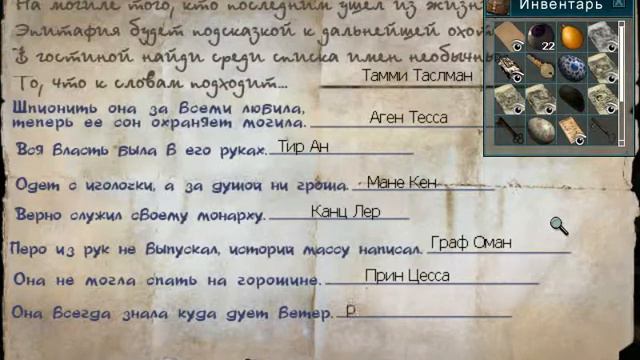 На могиле того, кто последним ушел из жизн
Эпитафия будет подсказкой к дальнейшей охот
В гостиной найди среди списка имен необычн
То, что к словам подходит...
Тамми Таслман
Шпионить она за всеми любила,
теперь ее сон охраняет могила.
Аген Тесса
Вся власть была в его руках.
Тир Ан
Одет с иголочки, а за душой ни гроша.
Мане Кен
Верно служил своему монарху.
Канц Лер
Перо из рук не выпускал, истории массу написал.
Граф Оман
Она не могла спать на горошине.
Прин Цесса
Она всегда знала куда дует ветер.
Р
Инвентарь
22